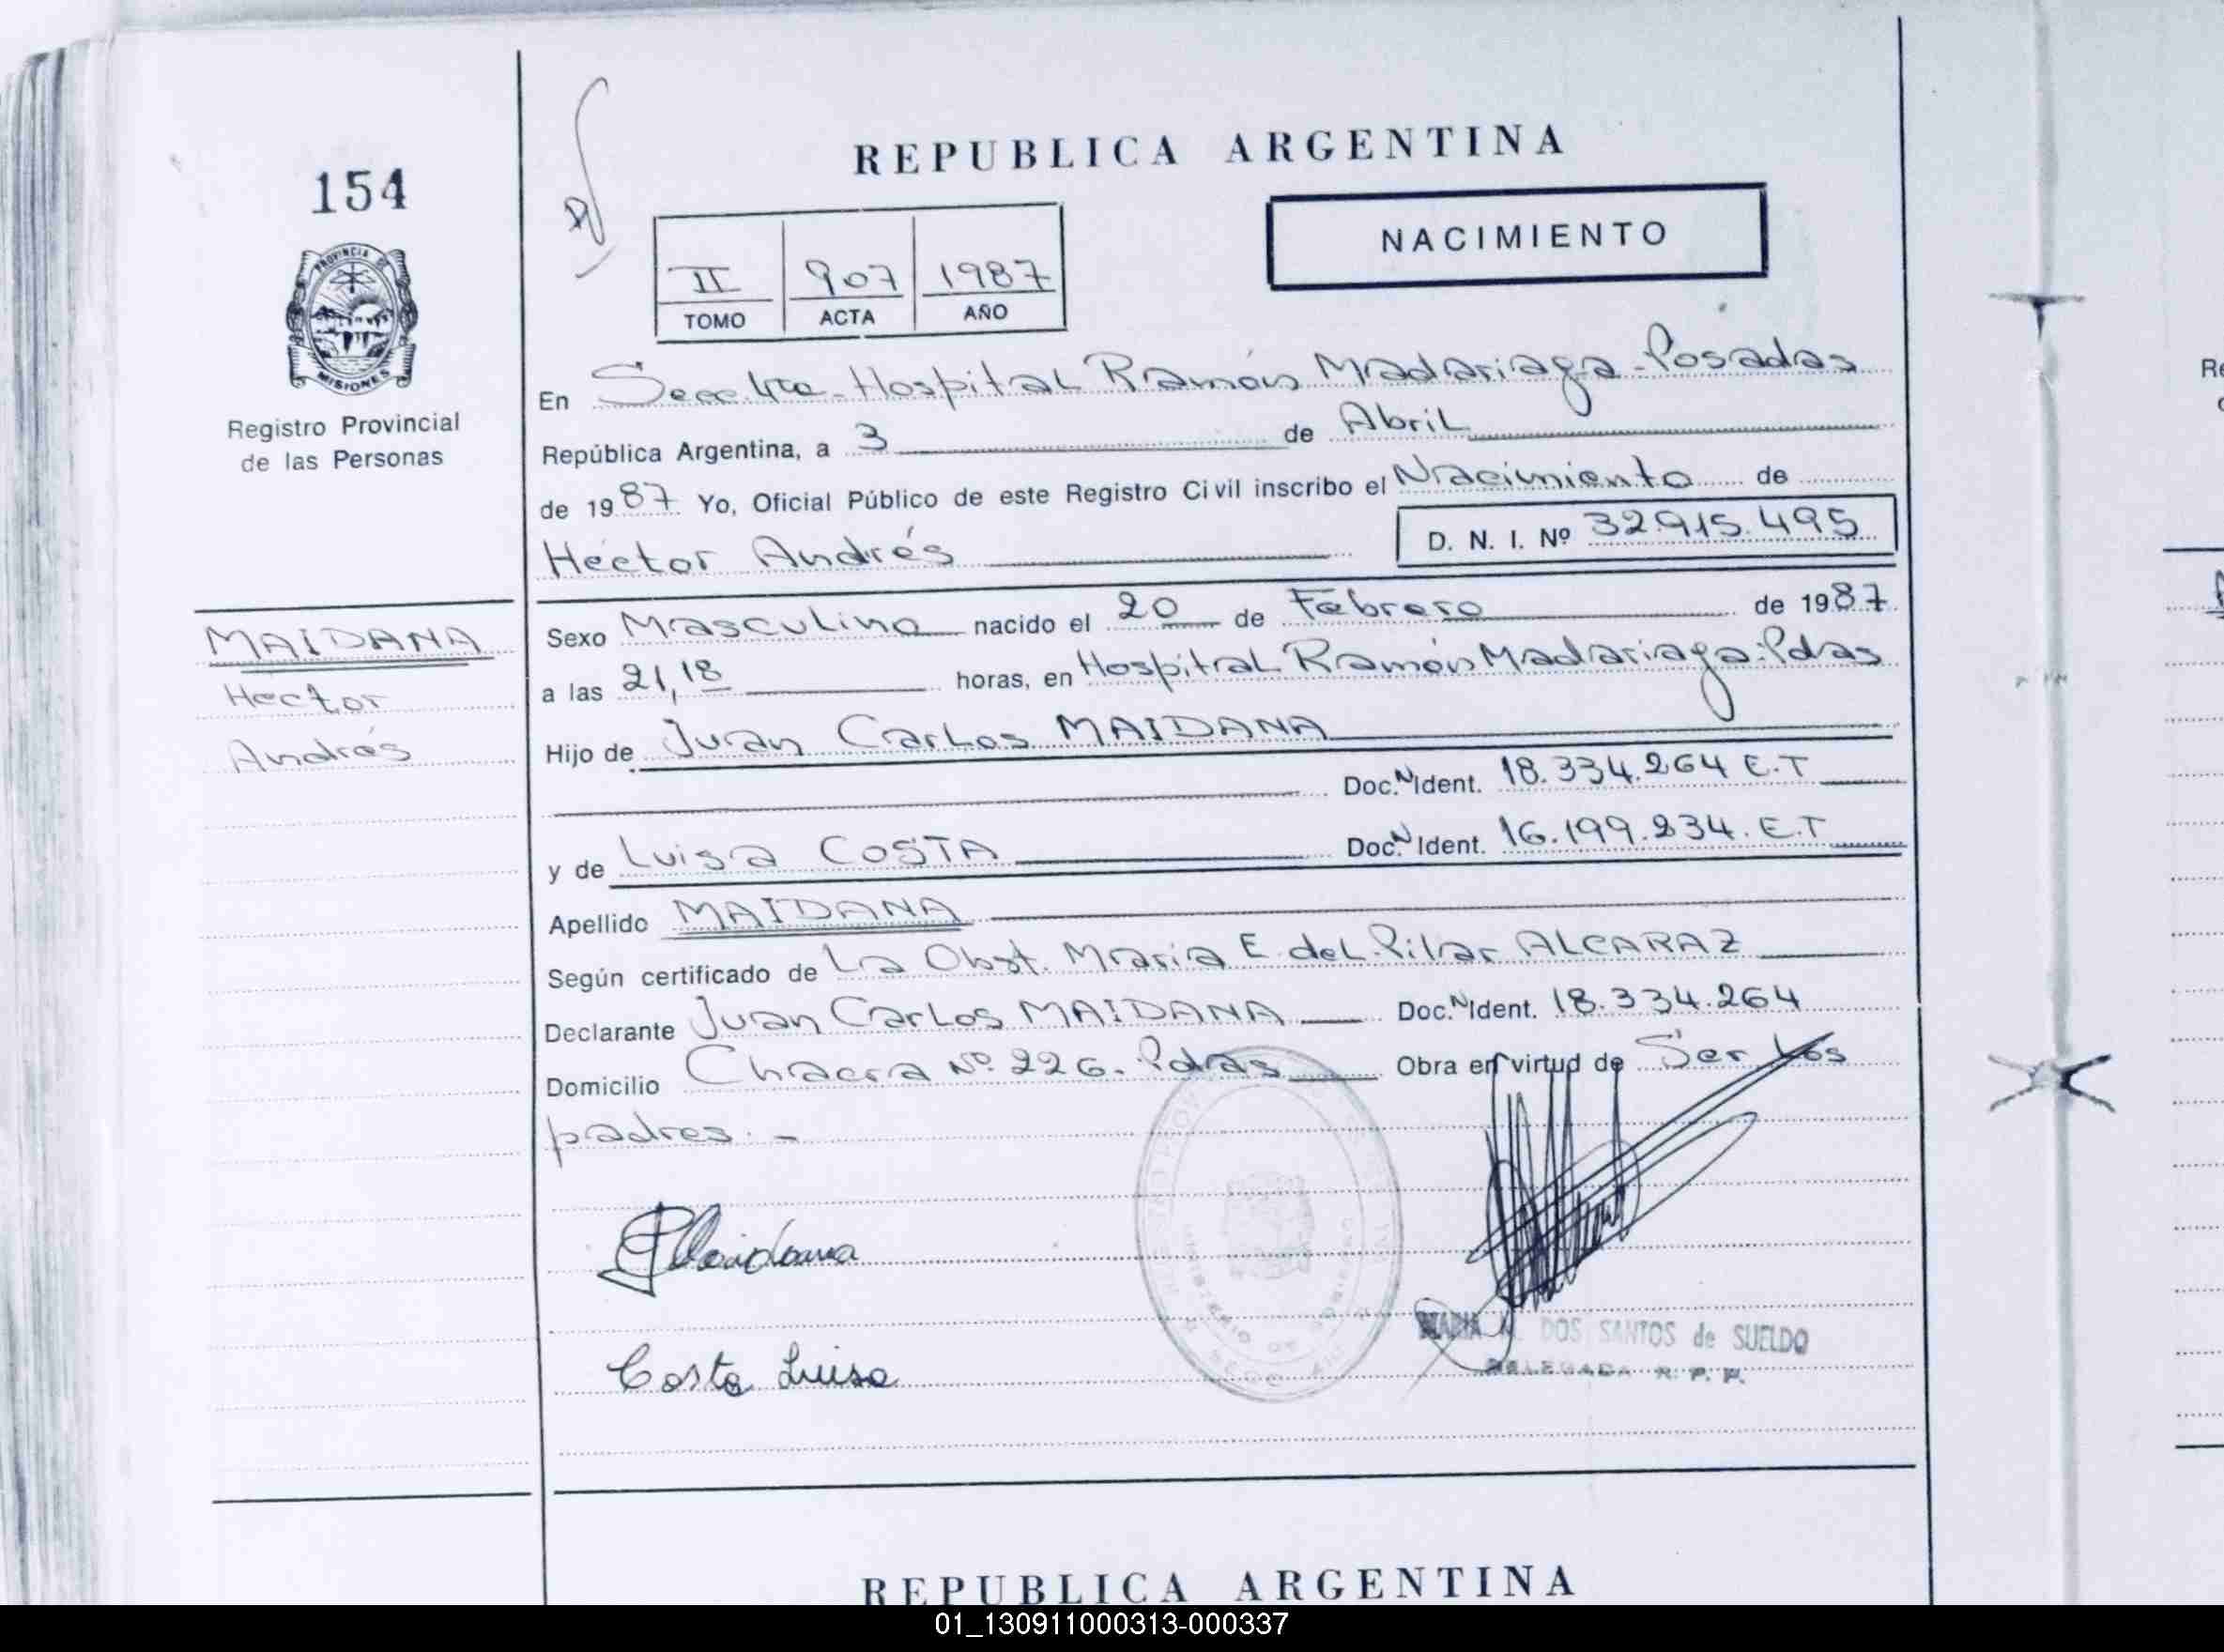 154
PROVINCIA DE
MISIONES
Registro Provincial
de las Personas
MAIDANA
Hector
Andrés
REPUBLICA ARGENTINA
II 907 1987
TOMO ACTA AÑO
NACIMIENTO
En Secc. 4ta - Hospital Ramón Madariaga - Posadas
República Argentina, a 3 de Abril
de 1987 Yo, Oficial Público de este Registro Civil inscribo el Nacimiento de
Héctor Andrés D. N. I. Nº 32.915.495
Sexo Masculino nacido el 20 de Febrero de 1987
a las 21,18 horas, en Hospital Ramón Madariaga - Pdas
Hijo de Juan Carlos MAIDANA
Doc. N Ident. 18.334.264 E.T
y de Luisa COSTA Doc. N Ident. 16.199.234. E.T
Apellido MAIDANA
Según certificado de La Obst. Maria E. del Pilar ALCARAZ
Declarante Juan Carlos MAIDANA Doc. N Ident. 18.334.264
Domicilio Chacra Nº 226. Pdas Obra en virtud de Ser los
padres. -
Maidana
Costa Luisa
MARIA DOS SANTOS de SUELDO
DELEGADA R. P. P.
REPUBLICA ARGENTINA
01_130911000313-000337